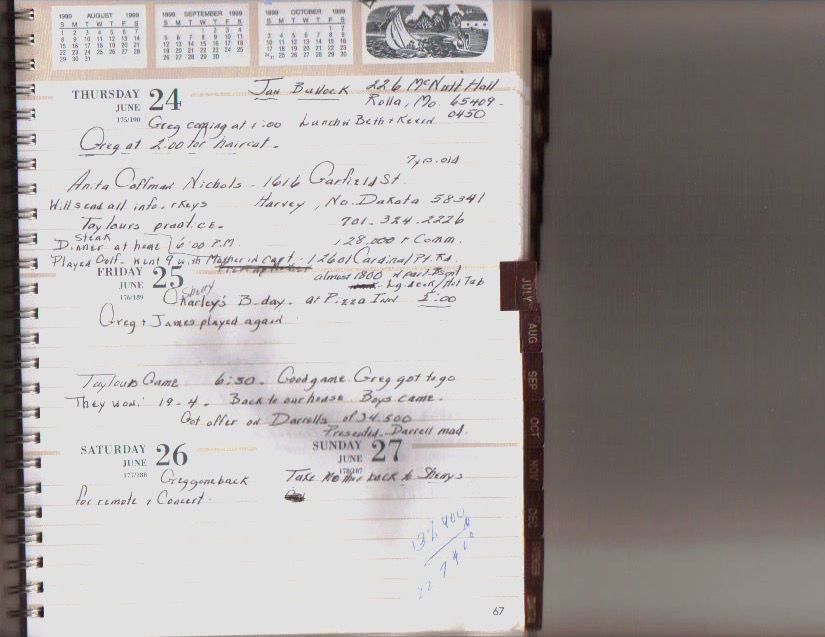 1999 AUGUST 1999
S M T W T F S
1 2 3 4 5 6 7
8 9 10 11 12 13 14
15 16 17 18 19 20 21
22 23 24 25 26 27 28
29 30 31
1999 SEPTEMBER 1999
S M T W T F S
1 2 3 4
5 6 7 8 9 10 11
12 13 14 15 16 17 18
19 20 21 22 23 24 25
26 27 28 29 30
1999 OCTOBER 1999
S M T W T F S
1 2
3 4 5 6 7 8 9
10 11 12 13 14 15 16
17 18 19 20 21 22 23
24 25 26 27 28 29 30
31
Jan Bullock 226 McNutt Hall
Rolla, Mo. 65409-
0450
THURSDAY 24
JUNE
175/190
Greg coming at 1:00 Lunch w Beth + Keven
Greg at 2:00 for haircut.
7 yrs. old
Anita Coffman Nichols - 1616 Garfield St.
Will send all info. + keys Harvey, No. Dakota 58341
Taylours practice. 701-324-2226
Steak
Dinner at home 6:00 P.M. 128,000 + Comm.
Played Golf. Went 9 with Mother in cart. 12601 Cardinal Pt. Rd
FRIDAY 25
JUNE
176/189
almost 1800 w part Bsmt
Lg. deck/Hot Tub
Charley's B.day. at Pizza Inn 1:00
Greg + James played again
Taylours Game 6:30. Good game. Greg got to go
They won. 19-4. Back to our house. Boys came.
Got offer on Darrells of 34,500
Presented. Darrell mad.
SATURDAY 26
JUNE
177/188
Greg gone back
for remote + Concert.
SUNDAY 27
JUNE
178/187
Take Mother back to Sherrys
67
JULY
AUG
SEP
OCT
NOV
DEC